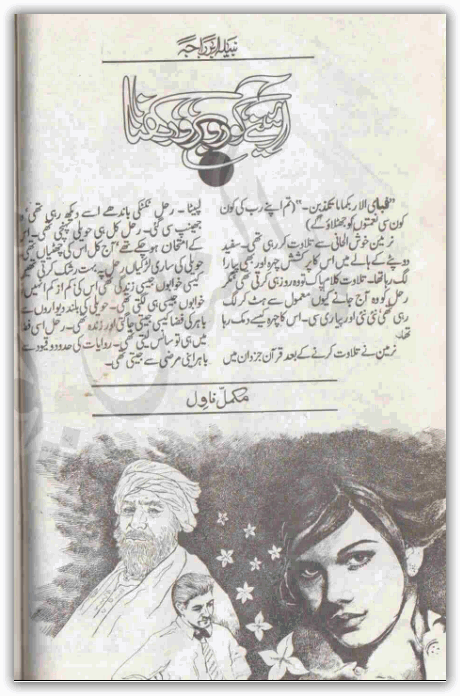 نبیلہ ابر راجہ
آئینے کو روبرو رکھنا
"فبای الا ربکما تکذبن۔" (تم اپنے رب کی کون
کون سی نعمتوں کو جھٹلاؤ گے)
نرمین خوش الحانی سے تلاوت کر رہی تھی۔ سفید
دوپٹے کے ہالے میں اس کا پر کشش چہرہ اور بھی پیارا
لگ رہا تھا۔ تلاوت کلام پاک تو وہ روز ہی کرتی تھی مگر
رحل کو وہ آج جانے کیوں معمول سے ہٹ کر لگ
رہی تھی نئی نئی اور پیاری سی۔ اس کا چہرہ کیسے دمک رہا
تھا۔
نرمین نے تلاوت کرنے کے بعد قرآن جزدان میں
لپیٹا۔ رحل ٹکٹکی باندھے اسے دیکھ رہی تھی وہ
جھینپ سی گئی۔ رحل کل ہی حویلی پہنچی تھی۔ اس
کے امتحان ہو چکے تھے آج کل اس کی چھٹیاں تھیں
حویلی کی ساری لڑکیاں رحل بہت رشک کرتی تھیں
کیسی خوابوں جیسی زندگی تھی اس کی کم از کم انہیں
خوابوں جیسی ہی لگتی تھی۔ حویلی کی بلند دیواروں سے
باہر کی فضا کیسی جیتی جاگتی اور زندہ تھی۔ رحل اسی فضا
میں ہی تو سانس لیتی تھی۔ روایات کی حدود و قیود سے
باہر اپنی مرضی سے جیتی تھی۔
مکمل ناول